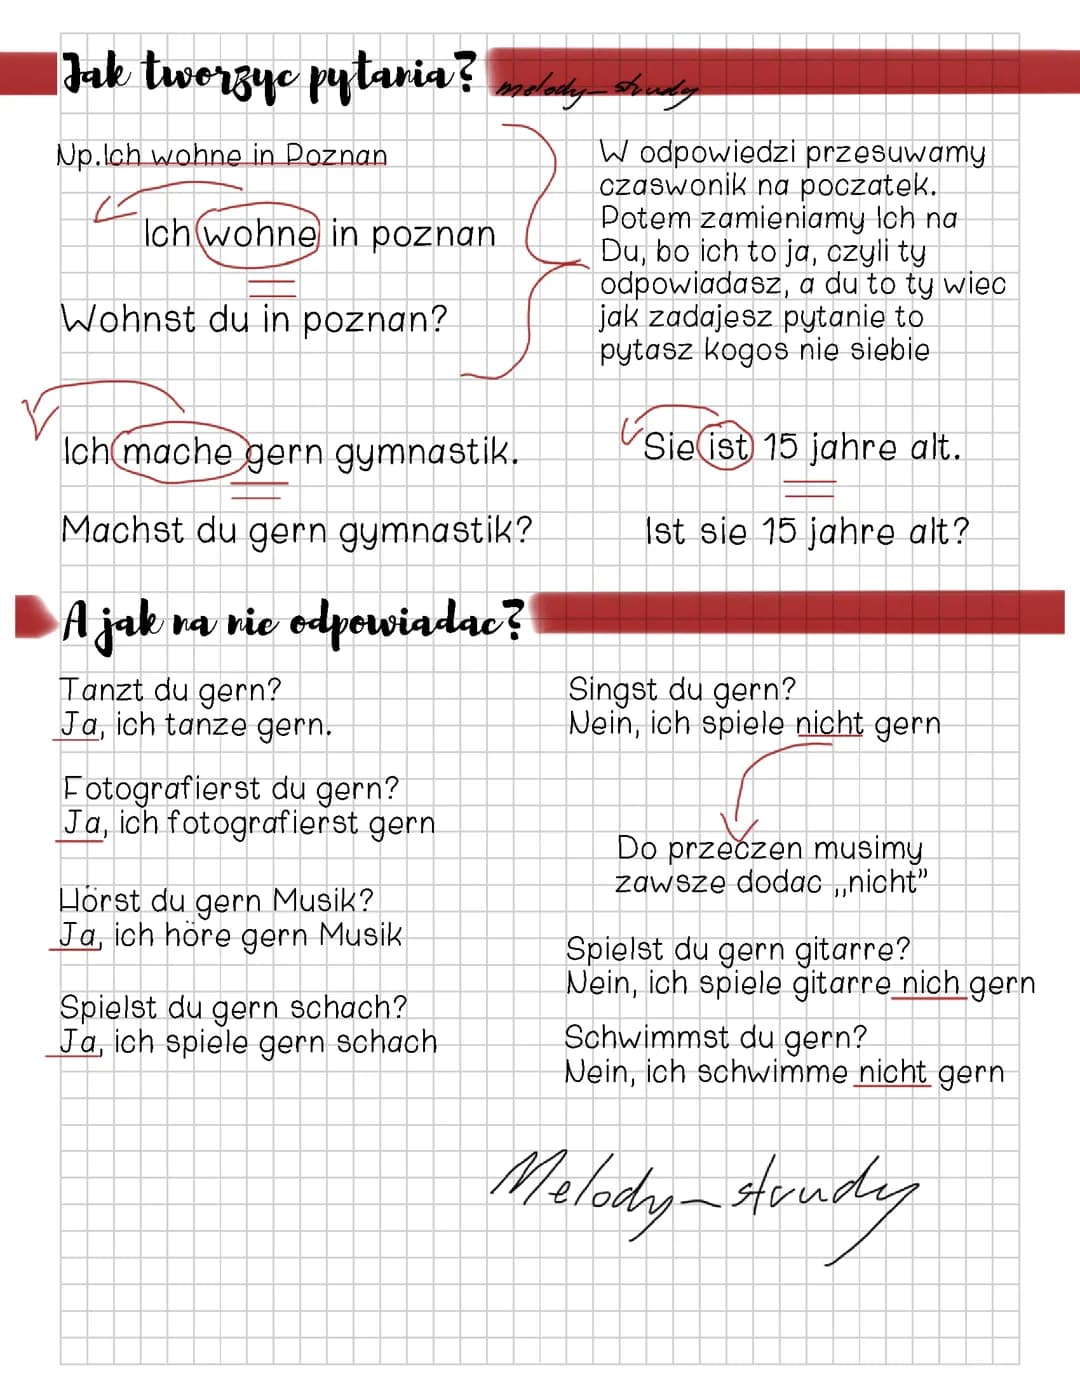 Jak tworzyc pytania?
melody-study
Np.Ich wohne in Poznan
Ich wohne in poznan
Wohnst du in poznan?
W odpowiedzi przesuwamy
czaswonik na poczatek.
Potem zamieniamy Ich na
Du, bo ich to ja, czyli ty
odpowiadasz, a du to ty wiec
jak zadajesz pytanie to
pytasz kogos nie siebie
Ich mache gern gymnastik.
Machst du gern gymnastik?
Sie ist 15 jahre alt.
Ist sie 15 jahre alt?
A jak na nie odpowiadac?
Tanzt du gern?
Ja, ich tanze gern.
Fotografierst du gern?
Ja, ich fotografierst gern
Hörst du gern Musik?
Ja, ich höre gern Musik
Spielst du gern schach?
Ja, ich spiele gern schach
Singst du gern?
Nein, ich spiele nicht gern
Do przeczen musimy
zawsze dodac ,,nicht"
Spielst du gern gitarre?
Nein, ich spiele gitarre nich gern
Schwimmst du gern?
Nein, ich schwimme nicht gern
Melody-study